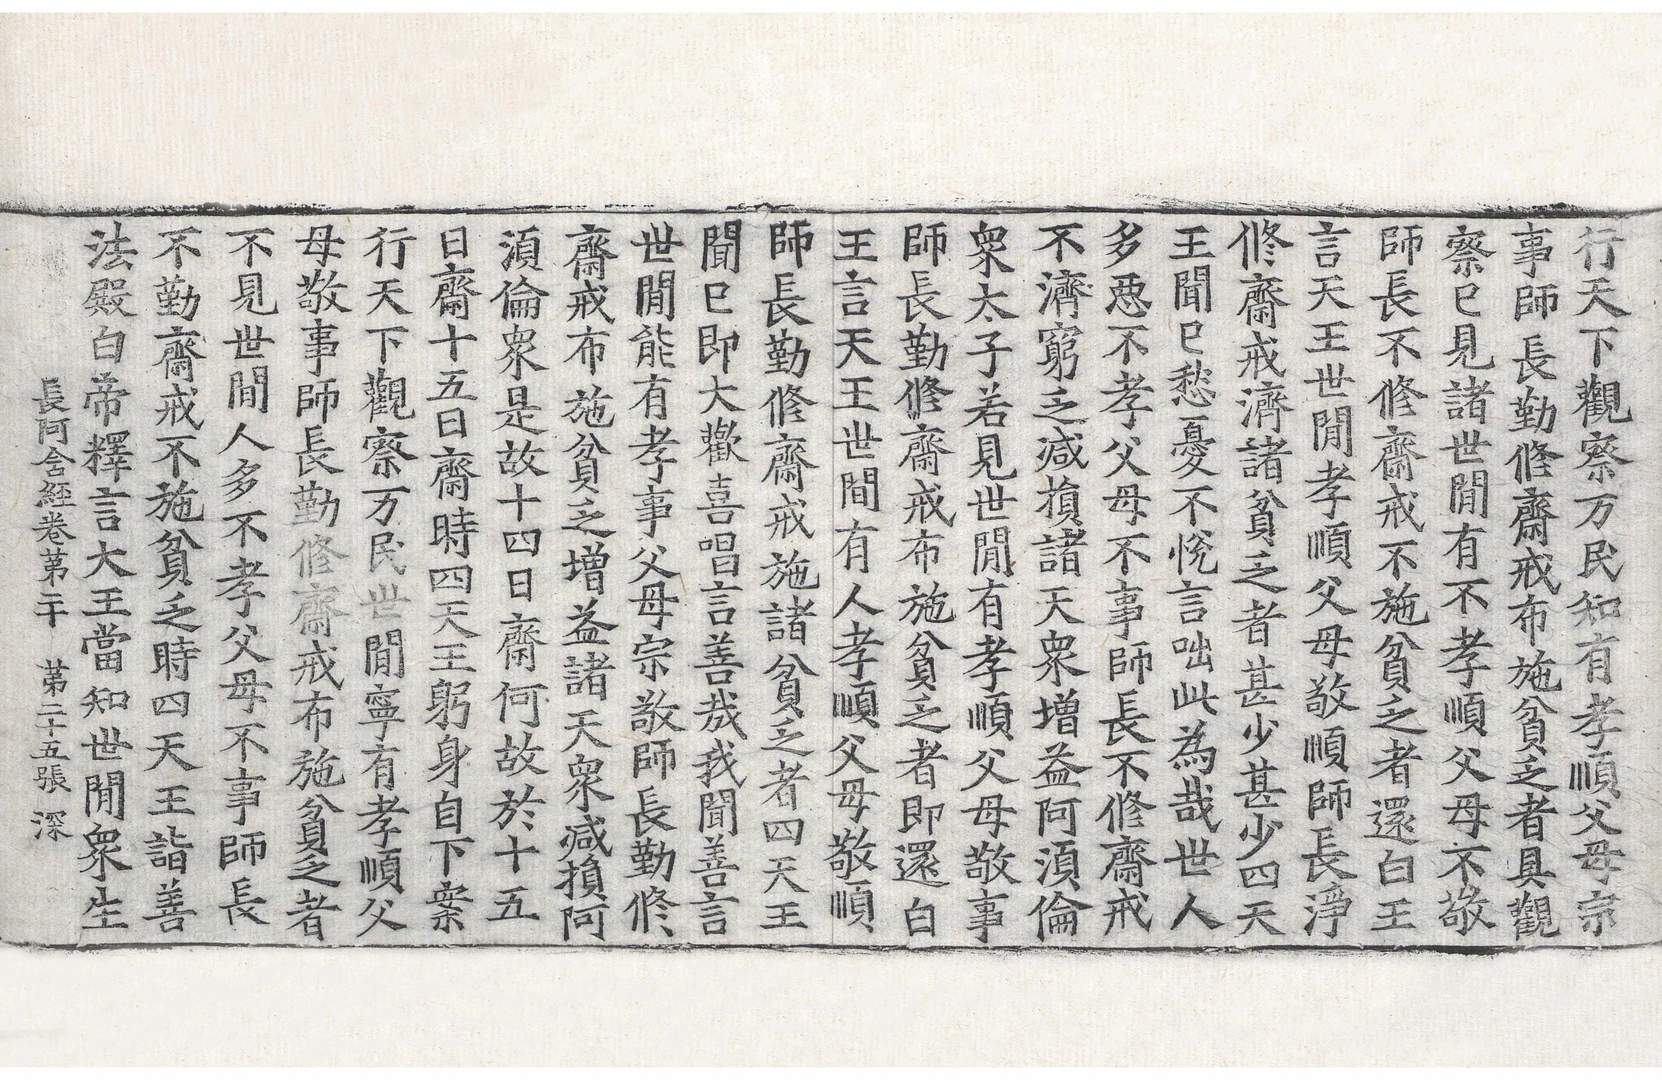 行天下觀察万民知有孝順父母宗
事師長勤修齋戒布施貧乏者具觀
察已見諸世閒有不孝順父母不敬
師長不修齋戒不施貧乏者還白王
言天王世閒孝順父母敬順師長淨
修齋戒濟諸貧乏者甚少甚少四天
王聞已愁憂不悅言咄此為哉世人
多惡不孝父母不事師長不修齋戒
不濟窮乏減損諸天衆增益阿湏倫
衆太子若見世閒有孝順父母敬事
師長勤修齋戒布施貧乏者即還白
王言天王世間有人孝順父母敬順
師長勤修齋戒施諸貧乏者四天王
聞已即大歡喜唱言善哉我聞善言
世閒能有孝事父母宗敬師長勤修
齋戒布施貧乏增益諸天衆減損阿
湏倫衆是故十四日齋何故於十五
日齋十五日齋時四天王躬身自下案
行天下觀察万民世閒寧有孝順父
母敬事師長勤修齋戒布施貧乏者
不見世間人多不孝父母不事師長
不勤齋戒不施貧乏時四天王詣善
法殿白帝釋言大王當知世閒衆生
長阿含經卷第二十 第二十五張 深